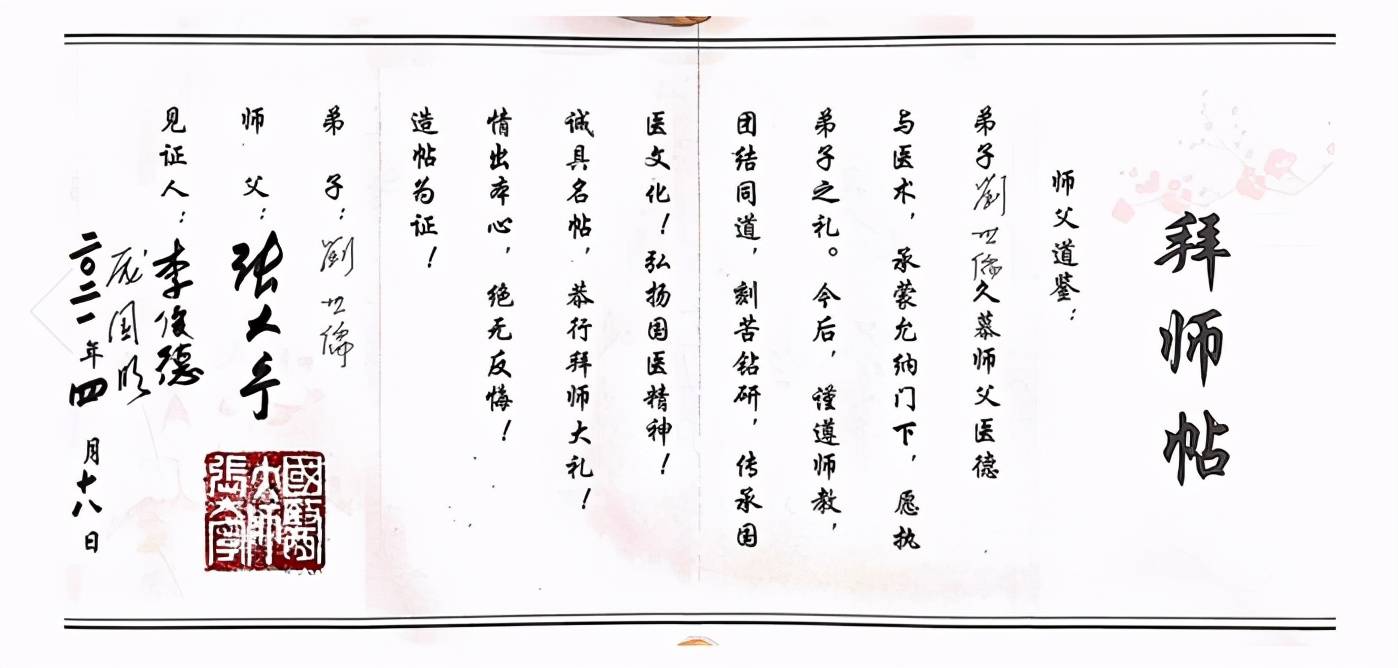 拜师帖
师父道鉴：
弟子劉世倫久慕师父医德
与医术，承蒙允纳门下，愿执
弟子之礼。今后，谨遵师教，
团结同道，刻苦钻研，传承国
医文化！弘扬国医精神！
诚具名帖，恭行拜师大礼！
情出本心，绝无反悔！
造帖为证！
弟子：劉世倫
师父：张大宁
國醫
大師
張大寧
见证人：李俊德
庞国明
二〇二一年四月十八日